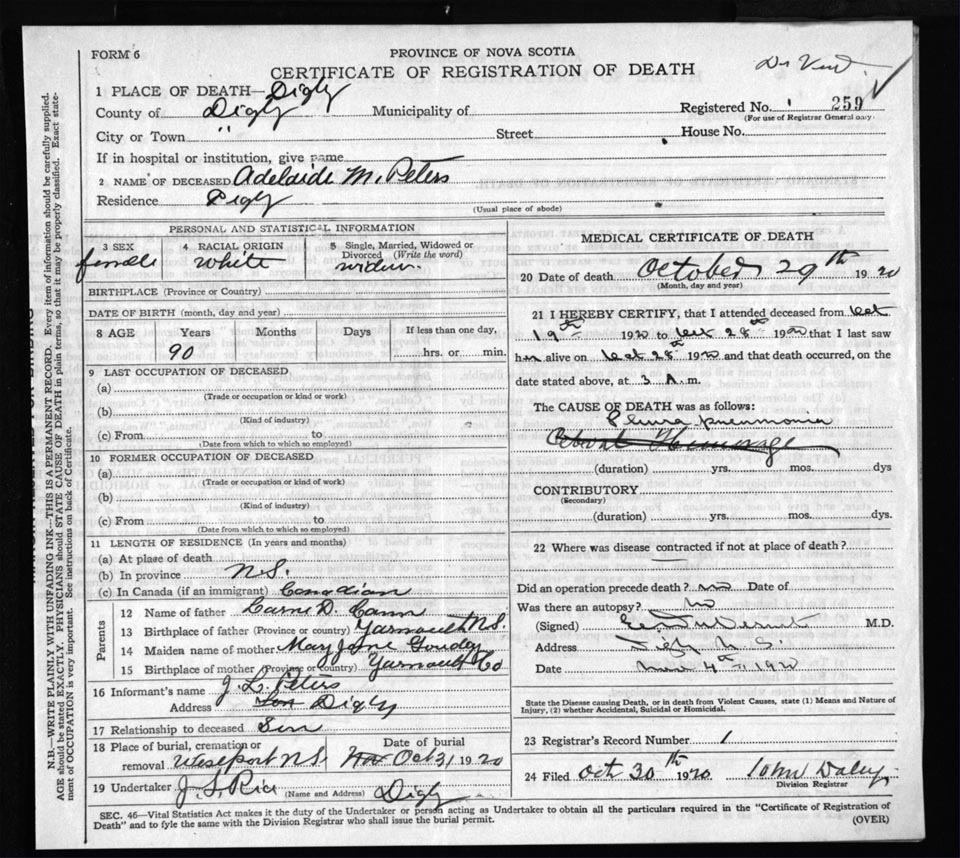 FORM 6
PROVINCE OF NOVA SCOTIA
CERTIFICATE OF REGISTRATION OF DEATH
1 PLACE OF DEATH—Digby
County of Digby Municipality of
Registered No. 259
(For use of Registrar General only.
City or Town " Street House No.
If in hospital or institution, give name
2 NAME OF DECEASED Adelaide M. Peters
Residence Digby
(Usual place of abode)
PERSONAL AND STATISTICAL INFORMATION
3 SEX female
4 RACIAL ORIGIN White
5 Single, Married, Widowed or Divorced (Write the word) widow
BIRTHPLACE (Province or Country)
DATE OF BIRTH (month, day and year)
8 AGE Years Months Days If less than one day,
90 hrs. or min.
9 LAST OCCUPATION OF DECEASED
(a)
(Trade or occupation or kind or work)
(b)
(Kind of industry)
(c) From to
(Date from which to which so employed)
10 FORMER OCCUPATION OF DECEASED
(a)
(Trade or occupation or kind of work)
(b)
(Kind of industry)
(c) From to
(Date from which to which so employed)
11 LENGTH OF RESIDENCE (In years and months)
(a) At place of death
(b) In province N.S.
(c) In Canada (if an immigrant) Canadian
Parents
12 Name of father D. Cann
13 Birthplace of father (Province or country) Yarmouth N.S.
14 Maiden name of mother Mary Jane Goudey
15 Birthplace of mother (Province or country) Yarmouth Co
16 Informant's name J. L. Peters
Address Son Digby
17 Relationship to deceased Son
18 Place of burial, cremation or removal Westport N.S. Date of burial Oct 31 1920
19 Undertaker J. S. Rice (Name and Address) Digby
MEDICAL CERTIFICATE OF DEATH
20 Date of death October 29th 1920
(Month, day and year)
21 I HEREBY CERTIFY, that I attended deceased from Oct
19th 1920 to Oct 28th 1920 that I last saw
her alive on Oct 28th 1920 and that death occurred, on the
date stated above, at 3 A.m.
The CAUSE OF DEATH was as follows:
Pleura pneumonia
(duration) yrs. mos. dys
CONTRIBUTORY
(Secondary)
(duration) yrs. mos. dys.
22 Where was disease contracted if not at place of death?
Did an operation precede death? no Date of
Was there an autopsy? no
(Signed) M.D.
Address Digby N.S.
Date 4th, 1920
State the Disease causing Death, or in death from Violent Causes, state (1) Means and Nature of
Injury, (2) whether Accidental, Suicidal or Homicidal.
23 Registrar's Record Number 1
24 Filed Oct 30th 1920 John Daley
Division Registrar
SEC. 46—Vital Statistics Act makes it the duty of the Undertaker or person acting as Undertaker to obtain all the particulars required in the "Certificate of Registration of
Death" and to fyle the same with the Division Registrar who shall issue the burial permit. (OVER)
N.B.—WRITE PLAINLY WITH UNFADING INK—THIS IS A PERMANENT RECORD. Every item of information should be carefully supplied.
AGE should be stated EXACTLY. PHYSICIANS should STATE CAUSE OF DEATH in plain terms, so that it may be properly classified. Exact state-
ment of OCCUPATION is very important. See instructions on back of Certificate.